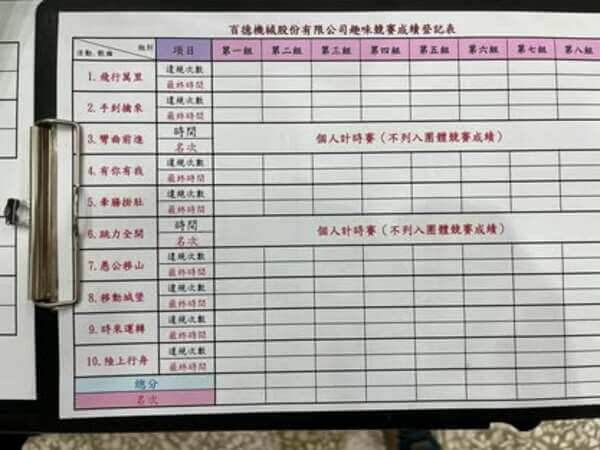 百德機械股份有限公司趣味競賽成績登記表
組別
活動、歌曲
項目 第一組 第二組 第三組 第四組 第五組 第六組 第七組 第八組
1.飛行萬里 違規次數
最終時間
2.手到擒來 違規次數
最終時間
3.彎曲前進 時間 個人計時賽(不列入團體競賽成績)
名次
4.有你有我 違規次數
最終時間
5.牽腸掛肚 違規次數
最終時間
6.跳力全開 時間 個人計時賽(不列入團體競賽成績)
名次
7.愚公移山 違規次數
最終時間
8.移動城堡 違規次數
最終時間
9.時來運轉 違規次數
最終時間
10.陸上行舟 違規次數
最終時間
總分
名次